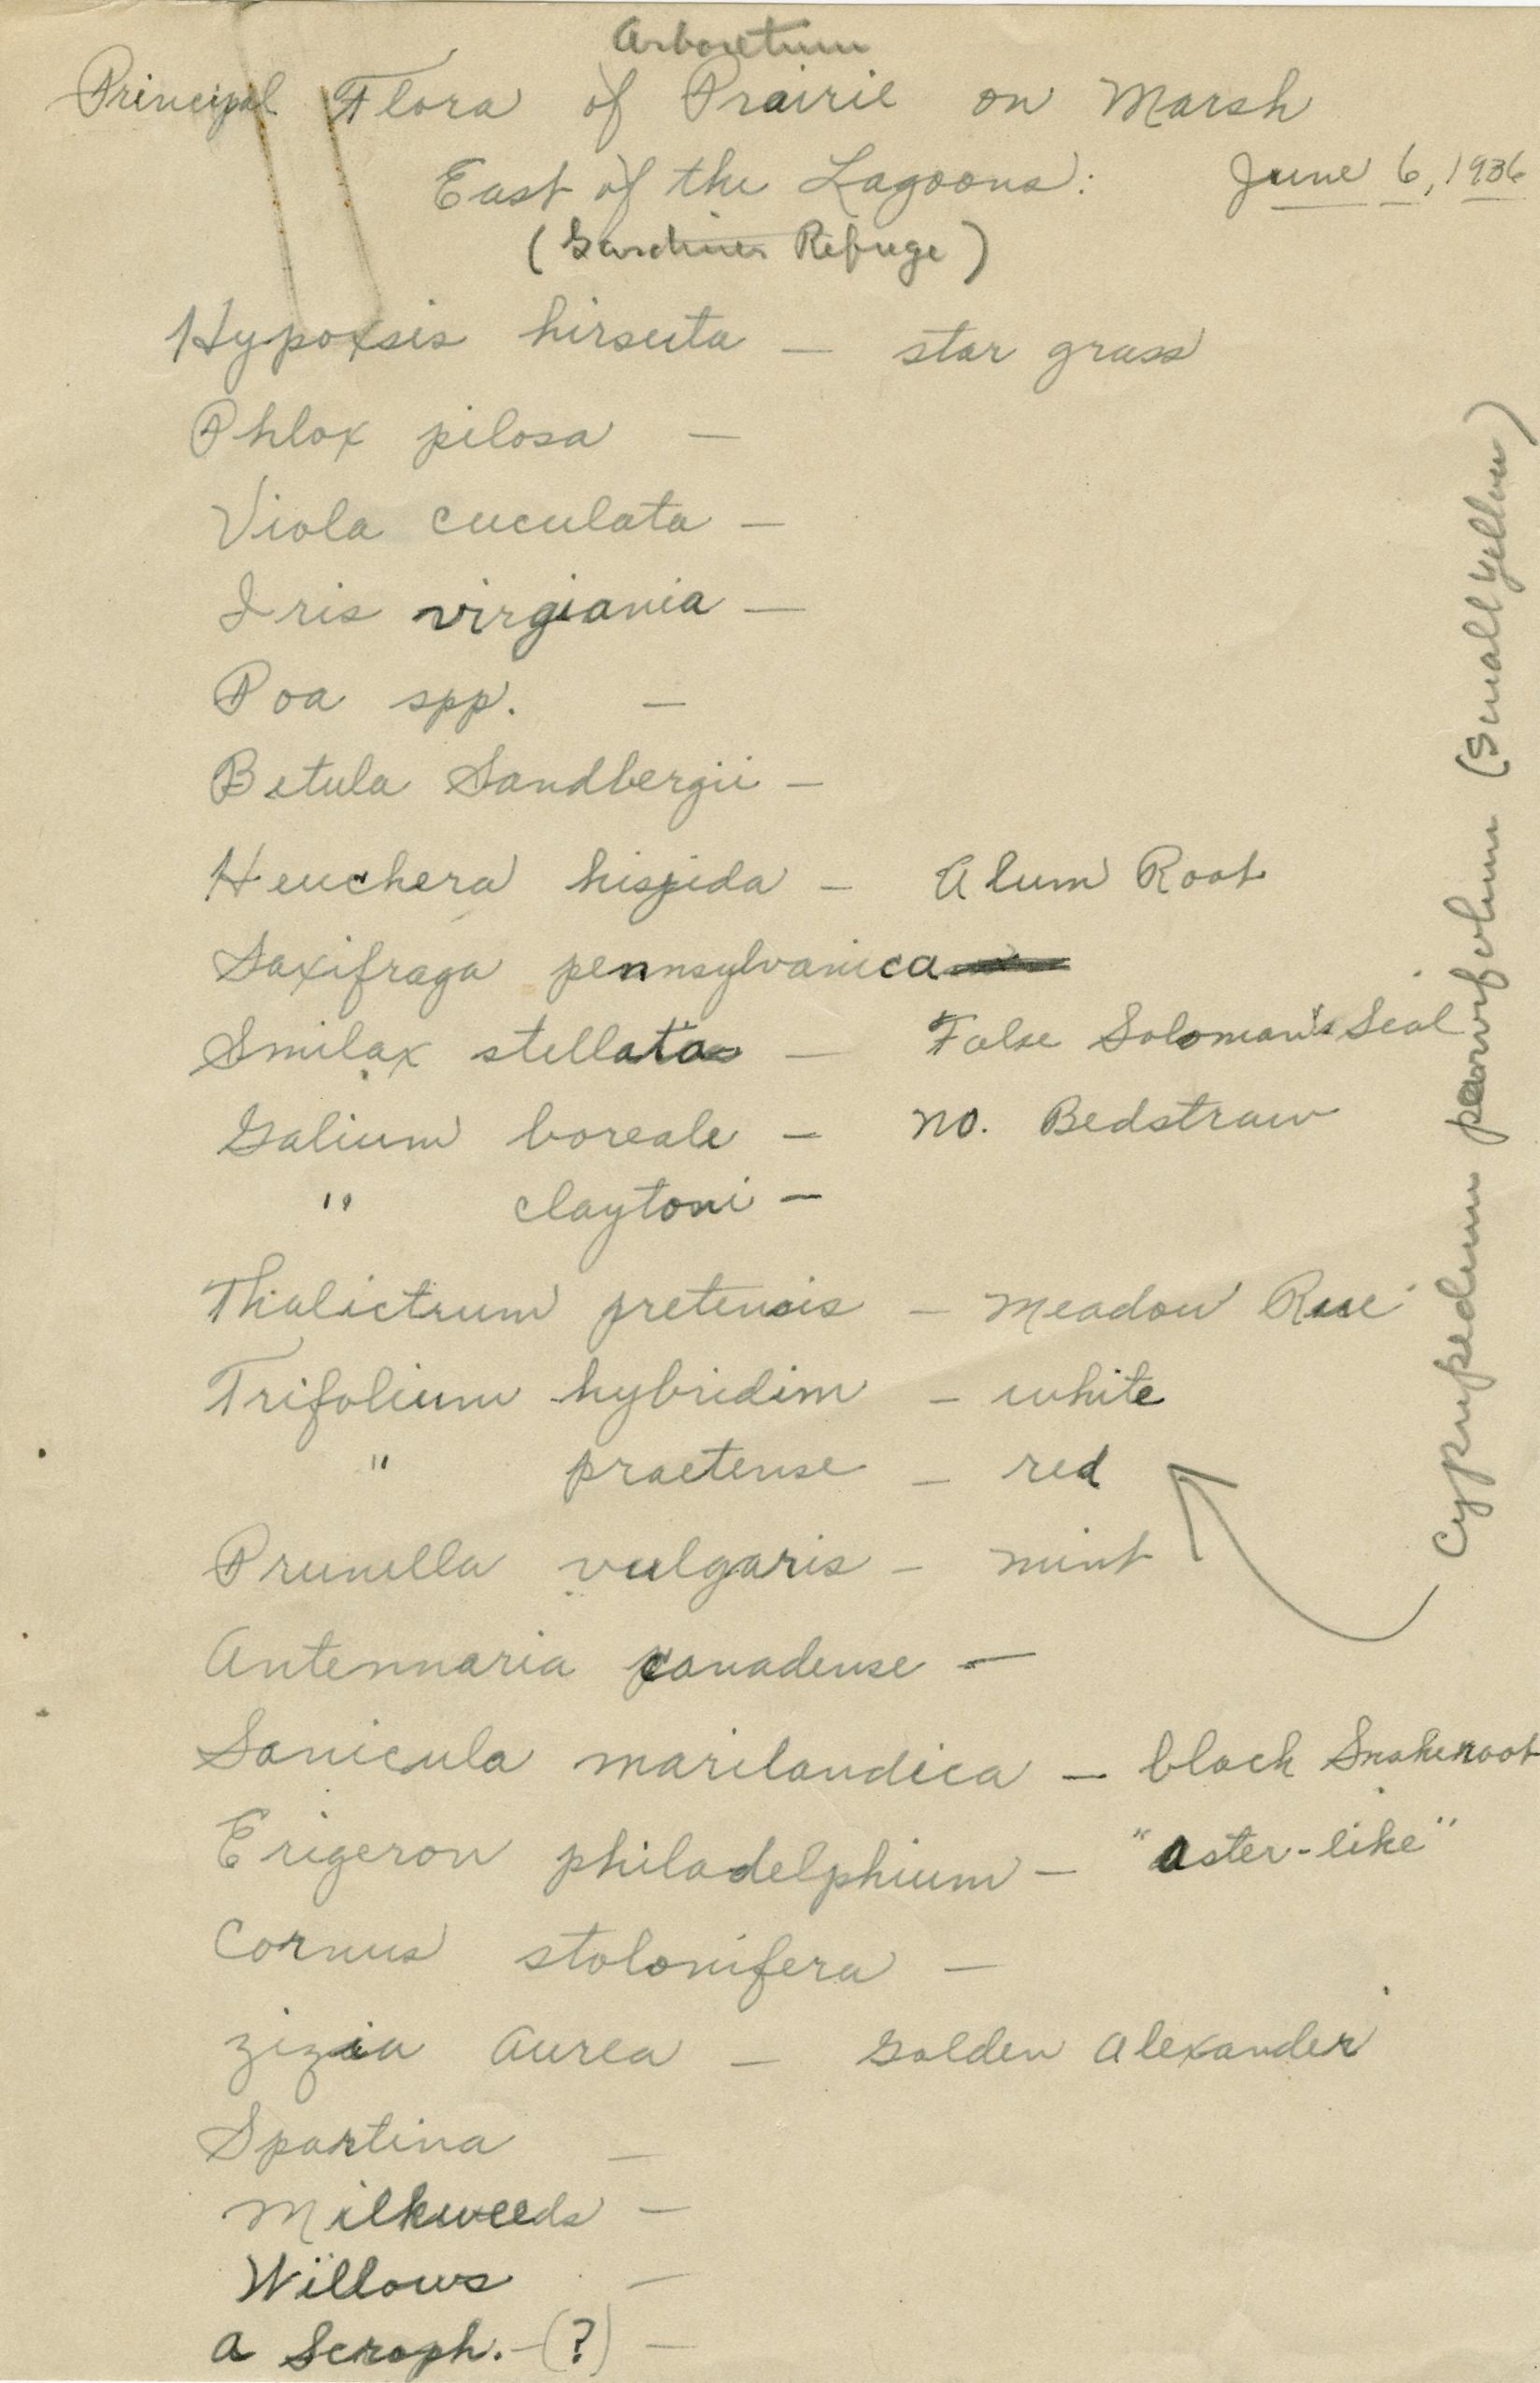 Arboretum
Principal Flora of Prairie on Marsh
East of the Lagoons: June 6, 1936
(Gardiner Refuge)
Hypoxsis hirsuta — star grass
Phlox pilosa —
Viola cuculata —
Iris virgiania —
Poa spp. —
Betula Sandbergii —
Heuchera hispida — Alum Root
Saxifraga pennsylvanica
Smilax stellata — False Soloman's Seal
Galium boreale — No. Bedstraw
" claytoni —
Thalictrum pretensis — Meadow Rue
Trifolium hybridim — white
" praetense — red
Prunella vulgaris — mint
Antennaria canadense —
Sanicula marilandica — black Snakeroot
Erigeron philadelphium — "aster-like"
Cornus stolonifera —
Zizia Aurea — Golden Alexander
Spartina —
Milkweeds —
Willows —
a Scroph. — (?) —
Cypripedium parvifolium (Small yellow)